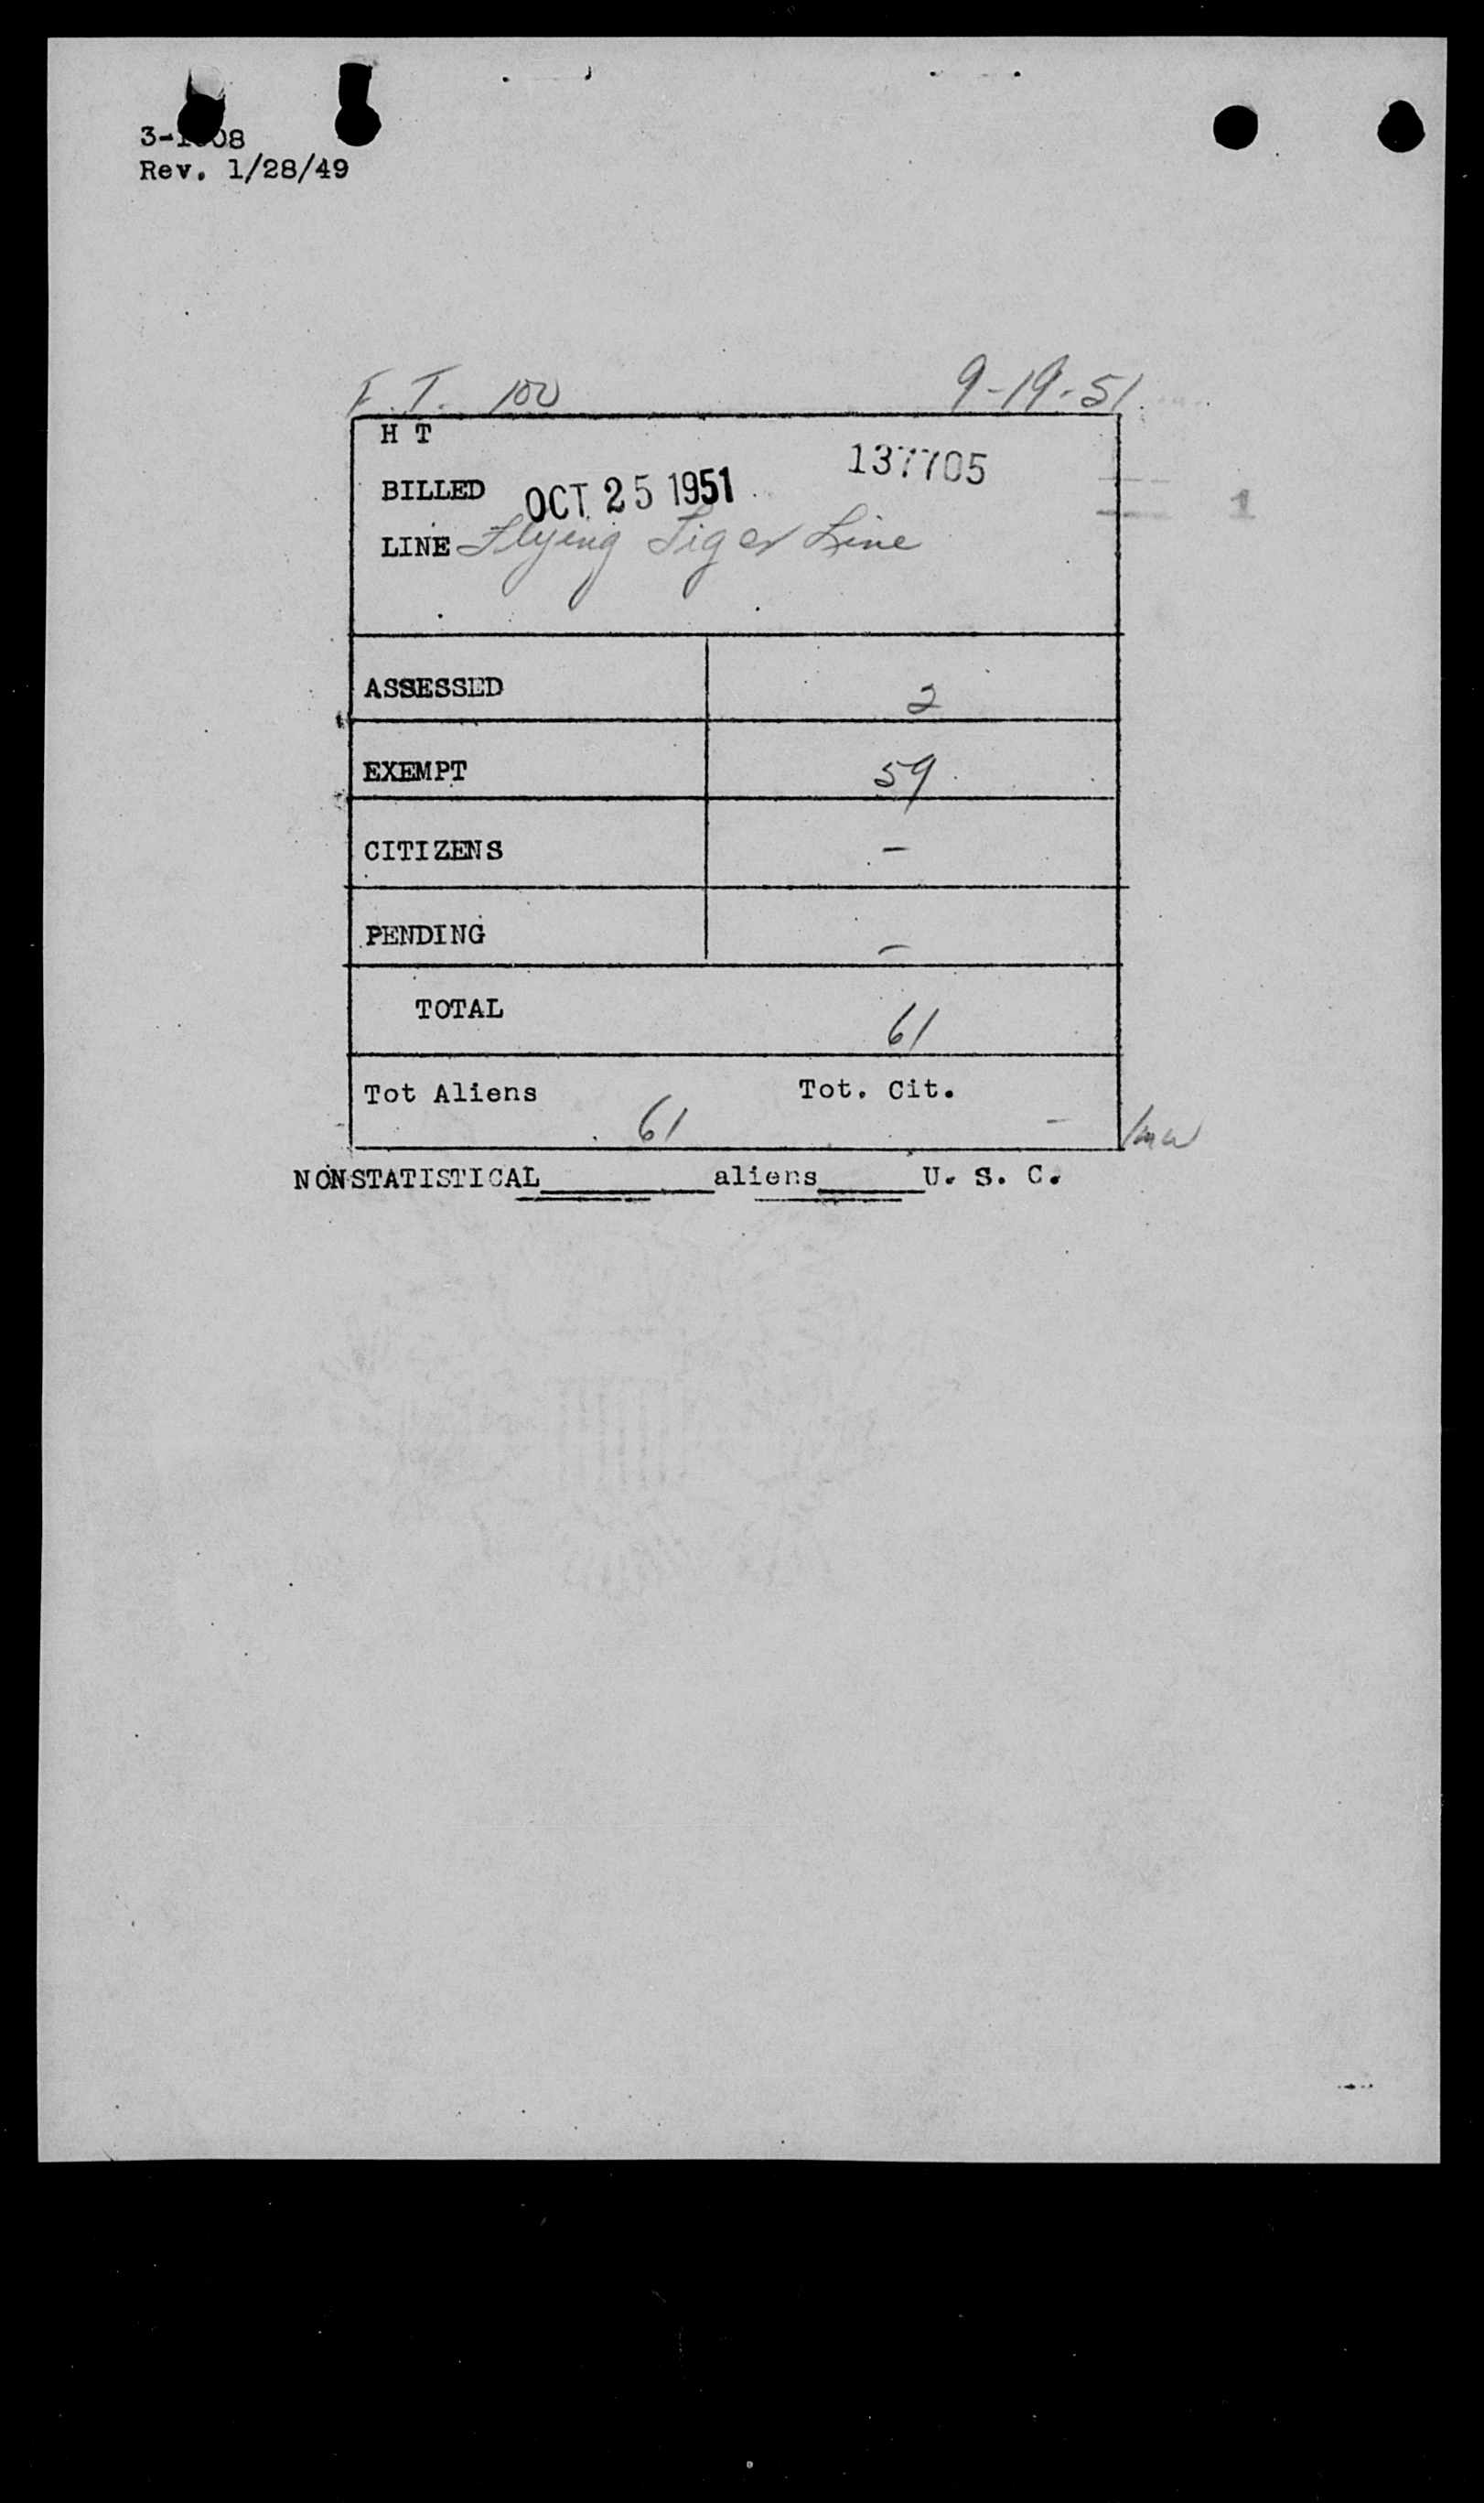 Rev. 1/28/49
F. T. 100 9-19-51
H T
137705
BILLED OCT 25 1951
1
LINE Flying Tiger Line
ASSESSED 2
EXEMPT 59
CITIZENS -
PENDING -
TOTAL 61
Tot Aliens 61 Tot. Cit. -
NONSTATISTICAL______aliens____U. S. C.